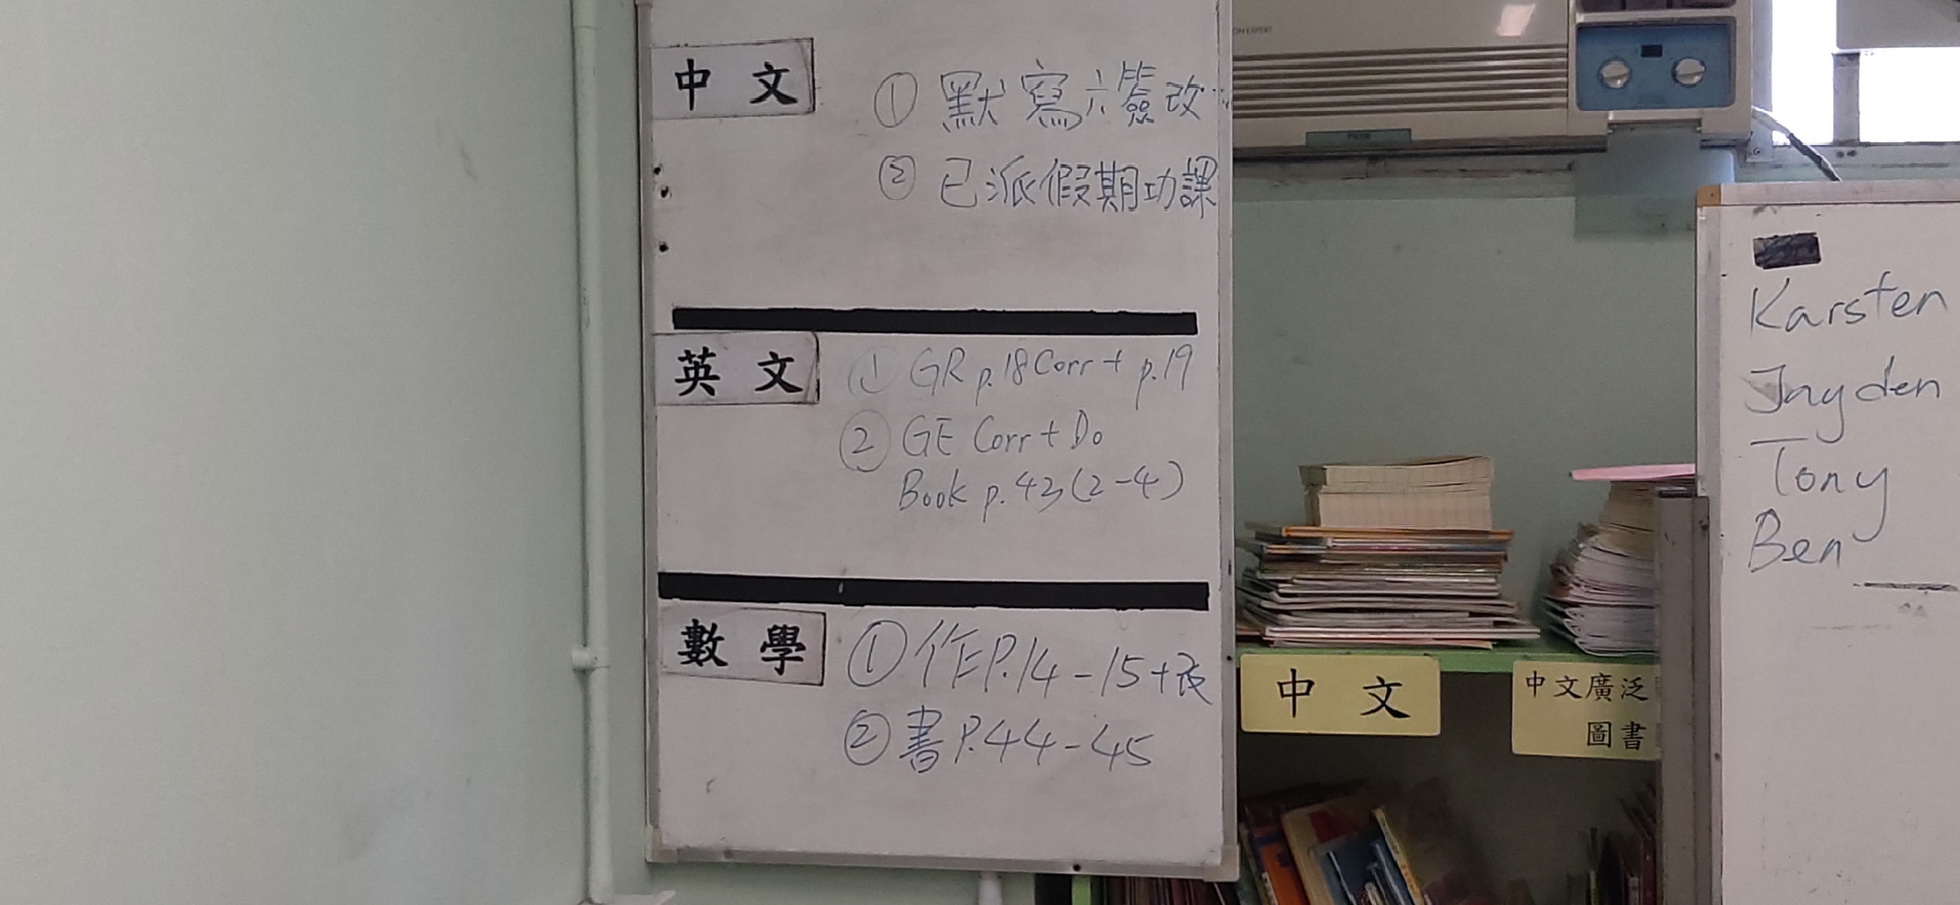 中文
① 默寫六簽改
② 已派假期功課
英文
① GR p.18 Corr + p.19
② GE Corr + Do
Book p.43 (2-4)
數學
① 作P.14-15+改
② 書P.44-45
中文
中文廣泛
圖書
Karsten
Jayden
Tony
Ben